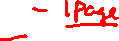 - 1 page